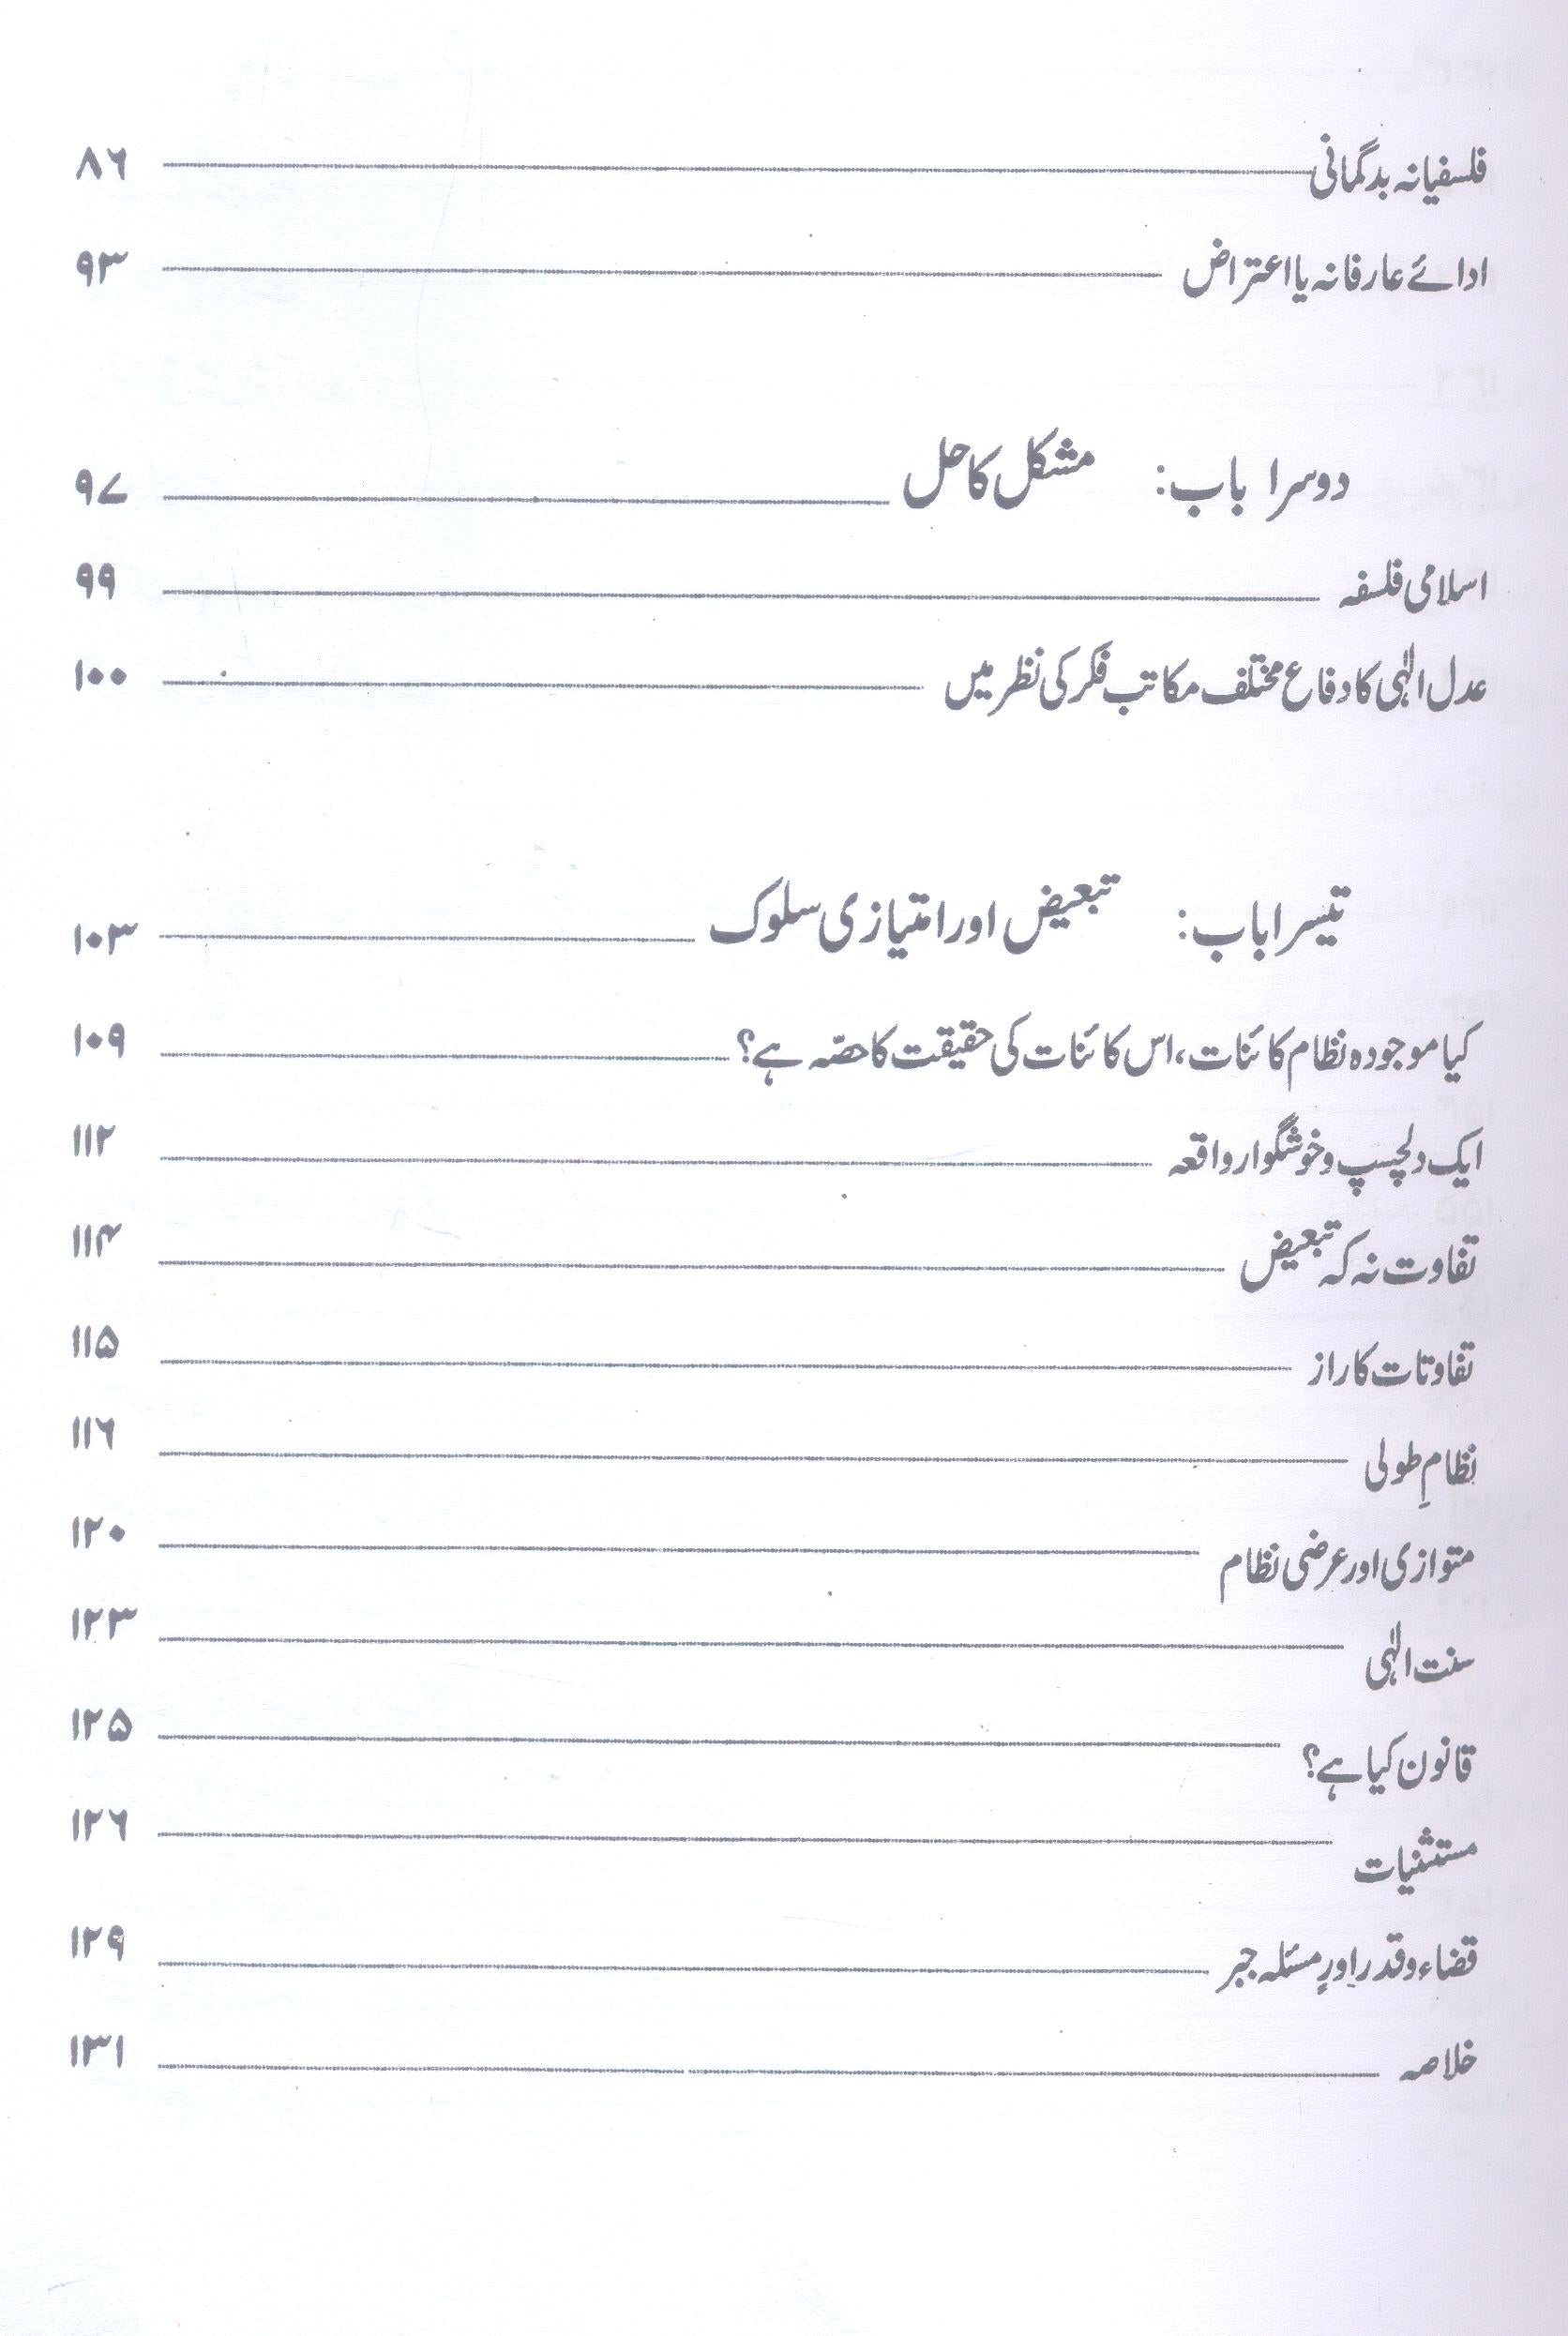 فلسفیانہ بدگمانی ۸۶
ادائے عارفانہ یا اعتراض ۹۳
دوسرا باب: مشکل کا حل ۹۷
اسلامی فلسفہ ۹۹
عدل الٰہی کا دفاع مختلف مکاتب فکر کی نظر میں ۱۰۰
تیسرا باب: تبعیض اور امتیازی سلوک ۱۰۳
کیا موجودہ نظام کائنات، اس کائنات کی حقیقت کا حصّہ ہے؟ ۱۰۹
ایک دلچسپ و خوشگوار واقعہ ۱۱۲
تفاوت نہ کہ تبعیض ۱۱۴
تفاوتات کا راز ۱۱۵
نظامِ طولی ۱۱۶
متوازی اور عرضی نظام ۱۲۰
سنت الٰہی ۱۲۳
قانون کیا ہے؟ ۱۲۵
مستثنیات ۱۲۶
قضاء و قدر اور مسئلہ جبر ۱۲۹
خلاصہ ۱۳۱